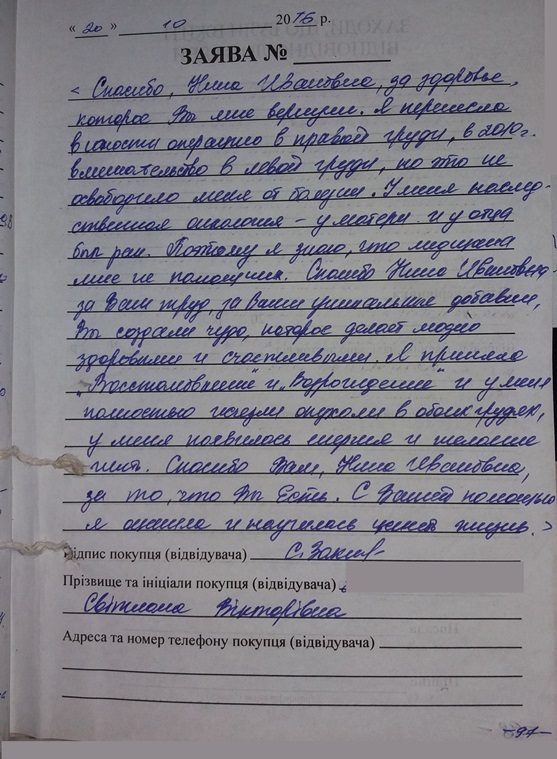 « 20 » 10 2016 р.
ЗАЯВА №
« Спасибо, Нина Ивановна, за здоровье,
которое Вы мне вернули. Я перенесла
в юности операцию в правой груди, в 2010 г.
вмешательство в левой груди, но это не
освободило меня от болезни. У меня наслед-
ственная онкология – у матери и у отца
был рак. Поэтому я знаю, что медицина
мне не помощник. Спасибо Нина Ивановна
за Ваш труд, за Ваши уникальные добавки,
Вы создали чудо, которое делает людей
здоровыми и счастливыми. Я приняла
„Восстановление" и „Возрождение" и у меня
полностью исчезли опухоли в обоих грудях,
у меня появилось энергия и желание
жить. Спасибо Вам, Нина Ивановна,
за то, что Вы Есть. С Вашей помощью
я ожила и научилась жизнь. »
Підпис покупця (відвідувача)
Прізвище та ініціали покупця (відвідувача)
Світлана Вікторівна
Адреса та номер телефону покупця (відвідувача)
-97-